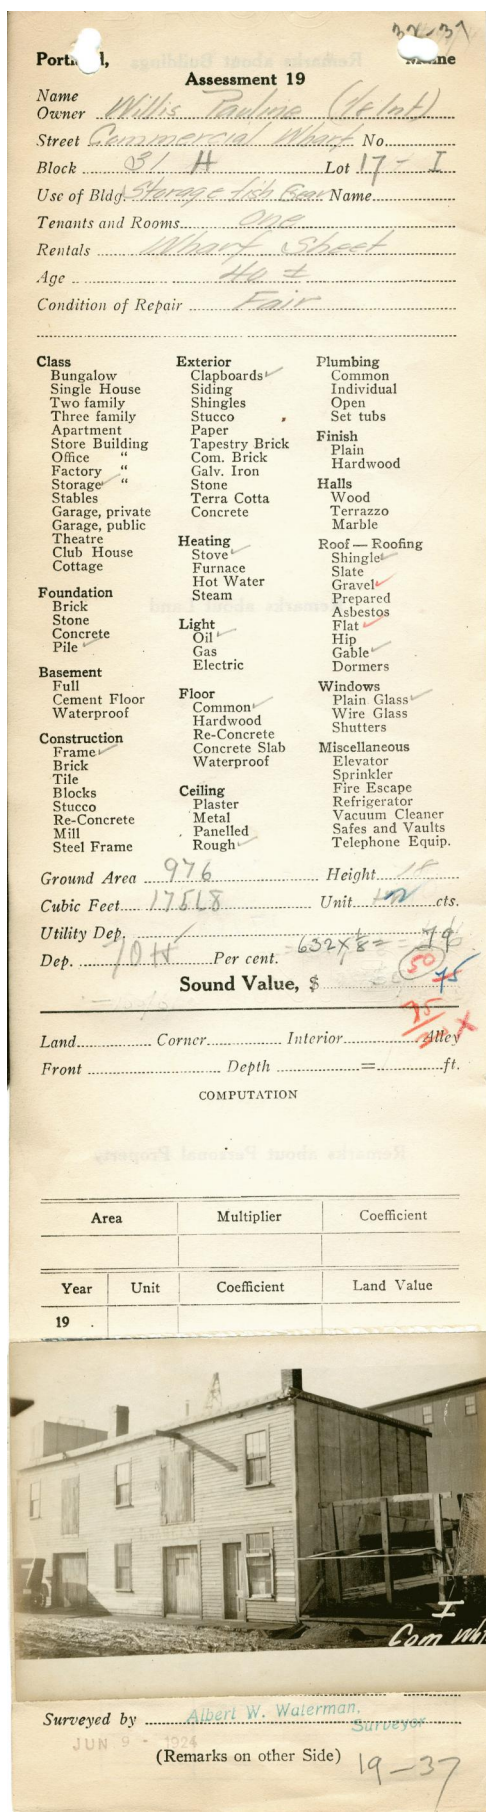 32-37
Portland, Maine
Assessment 19
Name
Owner Willis Pauline (1/8 Int)
Street Commercial Wharf No.
Block 31 H Lot 17 - I
Use of Bldg. Storage fish Gear Name
Tenants and Rooms One
Rentals Wharf Sheet
Age 40 ±
Condition of Repair Fair
Class
Bungalow
Single House
Two family
Three family
Apartment
Store Building
Office "
Factory "
Storage ✓ "
Stables
Garage, private
Garage, public
Theatre
Club House
Cottage
Foundation
Brick
Stone
Concrete
Pile ✓
Basement
Full
Cement Floor
Waterproof
Construction
Frame ✓
Brick
Tile
Blocks
Stucco
Re-Concrete
Mill
Steel Frame
Exterior
Clapboards ✓
Siding
Shingles
Stucco
Paper
Tapestry Brick
Com. Brick
Galv. Iron
Stone
Terra Cotta
Concrete
Heating
Stove ✓
Furnace
Hot Water
Steam
Light
Oil ✓
Gas
Electric
Floor
Common ✓
Hardwood
Re-Concrete
Concrete Slab
Waterproof
Ceiling
Plaster
Metal
Panelled
Rough ✓
Plumbing
Common
Individual
Open
Set tubs
Finish
Plain
Hardwood
Halls
Wood
Terrazzo
Marble
Roof — Roofing
Shingle ✓
Slate
Gravel ✓
Prepared
Asbestos
Flat ✓
Hip
Gable ✓
Dormers
Windows
Plain Glass ✓
Wire Glass
Shutters
Miscellaneous
Elevator
Sprinkler
Fire Escape
Refrigerator
Vacuum Cleaner
Safes and Vaults
Telephone Equip.
Ground Area 976 Height 18
Cubic Feet 17568 Unit cts.
Utility Dep.
Dep. 70 Per cent. 632 x 1/8 = 79
50 75
Sound Value, $
Land Corner Interior Alley
Front Depth = ft.
COMPUTATION
Area Multiplier Coefficient
Year Unit Coefficient Land Value
19 .
I
Com Whf
Surveyed by Albert W. Waterman,
Surveyor
JUN 9 - 1924
(Remarks on other Side)
19-37